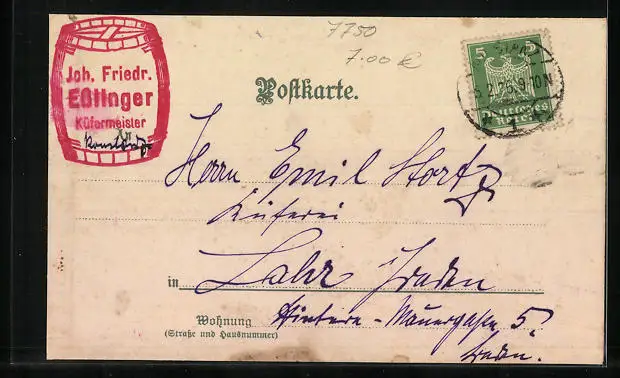 7750
7.00 €
Joh. Friedr.
Eßlinger
Küfermeister
Konstanz
5 5
Deutsches
Reich
9-10 N
1
Postkarte.
Herrn Emil Stortz
Küferei
in Lahr i/Baden
Wohnung Hintere-Mauergasse 5.
(Straße und Hausnummer)
Baden.